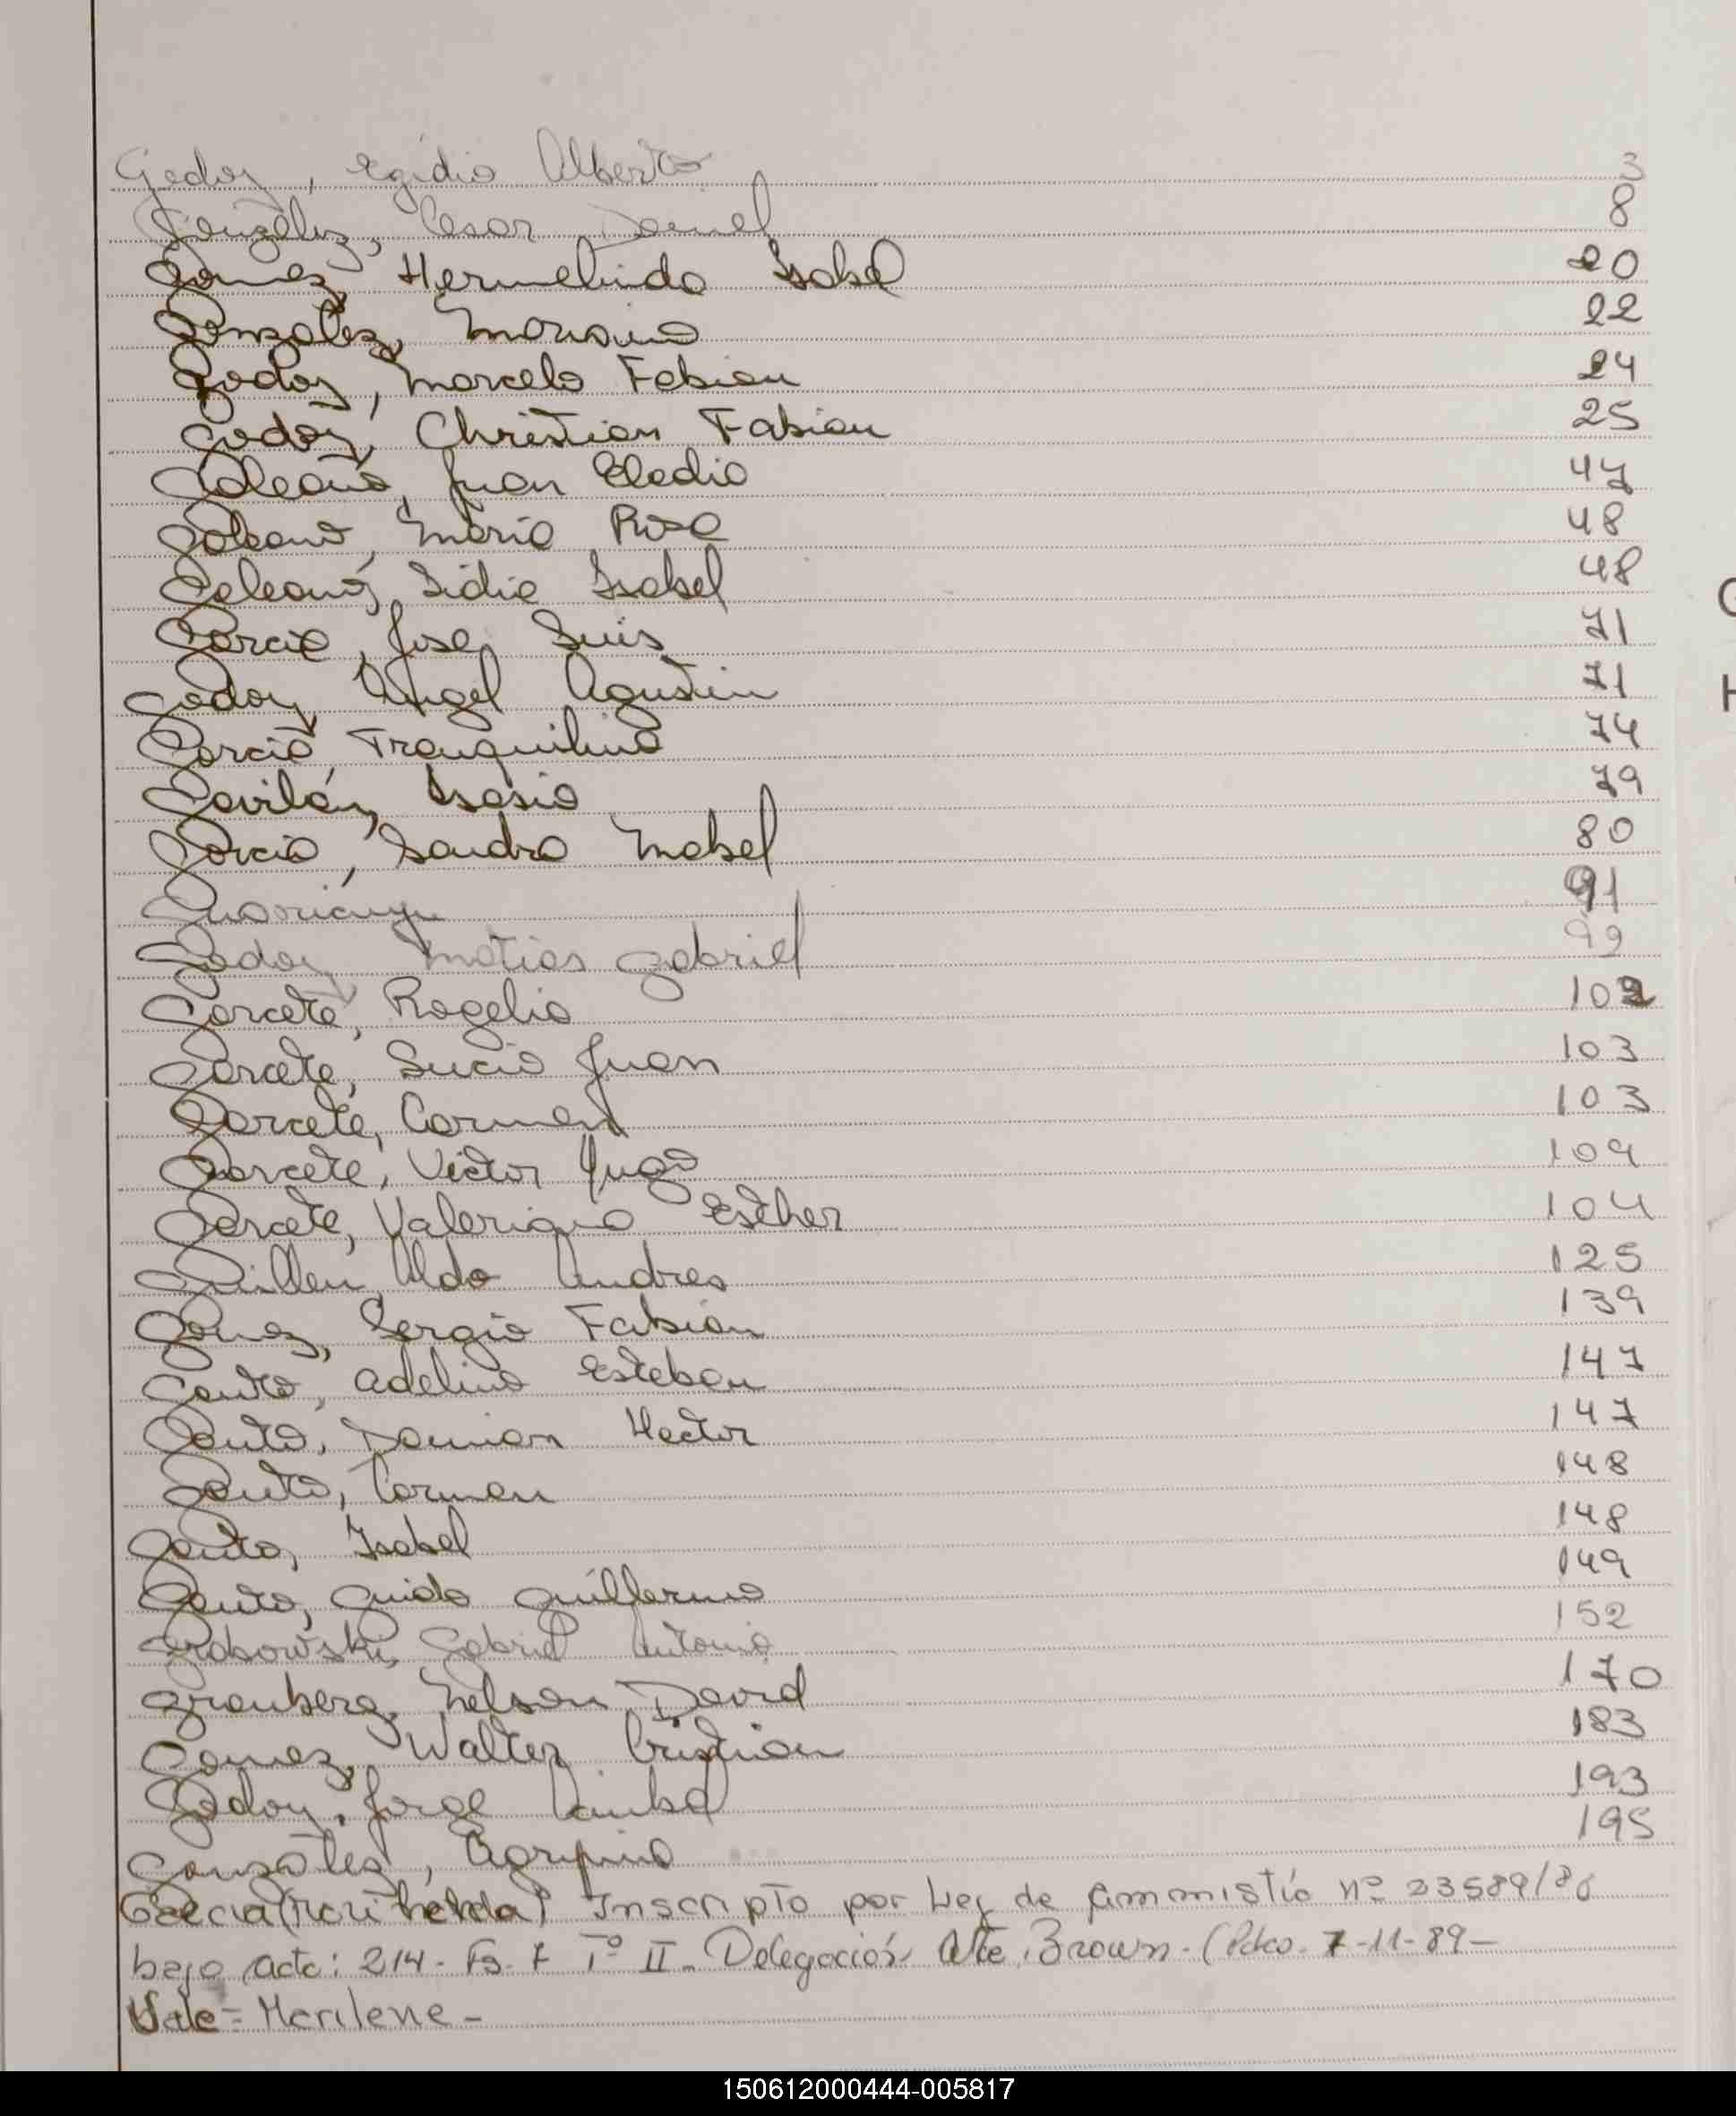 Godoy, Egidio Alberto 3
González, Cesar Daniel 8
Gomez, Hermelinda Isabel 20
Gonzalez, Mariano 22
Godoy, Marcelo Fabian 24
Godoy, Christian Fabian 25
Galeano, Juan Eladio 47
Galeano, Maria Rosa 48
Galeano, Lidia Isabel 48
Garcia, Jose Luis 71
Godoy, Angel Agustin 71
Garcia, Tranquilino 74
Gavilán, Isasio 79
Garcia, Sandra Mabel 80
91
Godoy Matias Gabriel 99
Garcete, Rogelio 102
Garcete, Lucio Juan 103
Garcete, Carmen 103
Garcete, Victor Hugo 104
Garcete, Valeriano Esther 104
Guillen, Aldo Andres 125
Gomez, Sergio Fabián 139
Gauto, Adelino Esteban 147
Gauto, Damian Hector 147
Gauto, Carmen 148
Gauto, Isabel 148
Gauto, Guido Guillermo 149
Grabowski, Gabriel Antonio 152
Granberg, Nelson David 170
Gomez, Walter Cristian 183
Godoy, Jorge Anibal 193
Gonzalez, Agripino 195
Garcia Inscripto por Ley de Ammistia nº 23589/88
bajo acta: 214- Fs. 7 Tº II- Delegación Alte. Brown- (Pcko. 7-11-89-
Vale= Marilene-
G
H
150612000444-005817